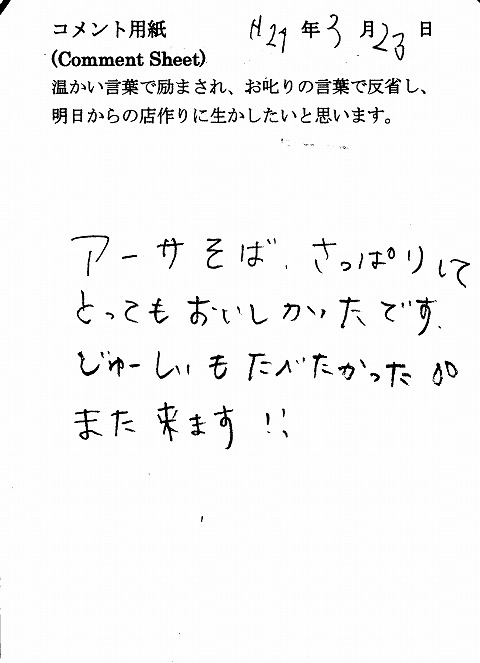 コメント用紙 H29年3月23日
(Comment Sheet)
温かい言葉で励まされ、お叱りの言葉で反省し、
明日からの店作りに生かしたいと思います。
アーサそば、さっぱりして
とってもおいしかったです。
じゅーしぃもたべたかった
また来ます!!